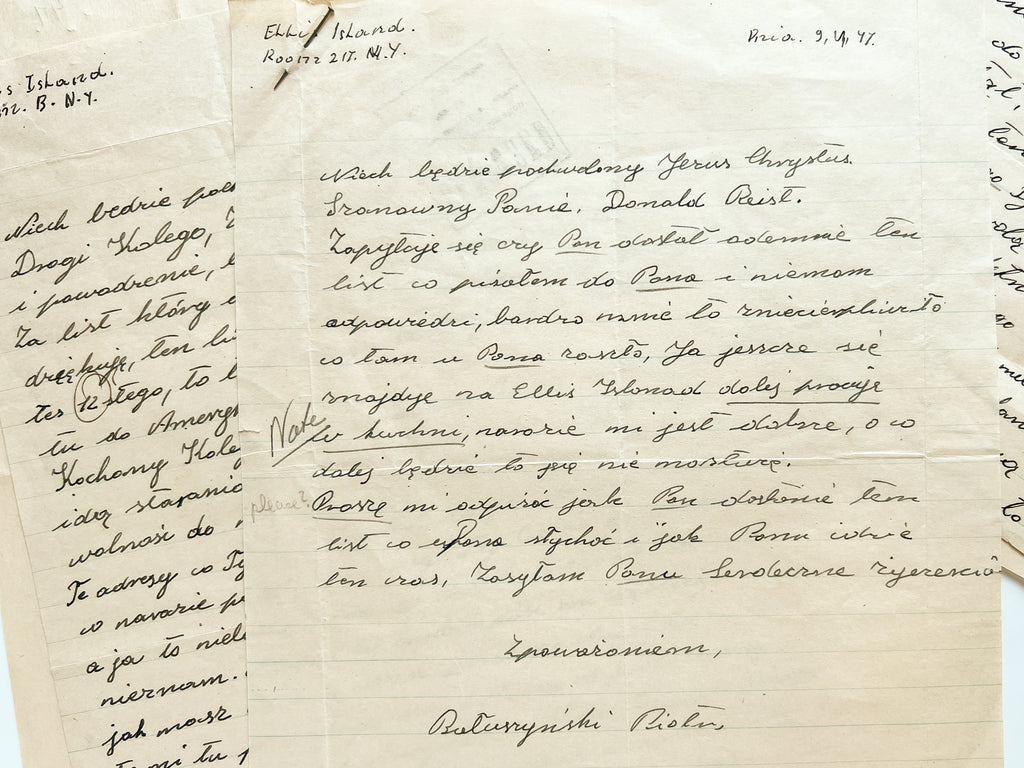 Ellis Island.
Room 217. N.Y.
Dnia. 9, VI, 47.
Niech będzie pochwalony Jezus Chrystus.
Szanowny Panie, Donald Reist.
Zapytuję się czy Pan dostał odemnie ten
list co pisałem do Pana i niemam
odpowiedzi, bardzo mnie to
co tam u Pana zaszło, Ja jeszcze się
znajduję na Ellis Islonad dalej pracuję
w kuchni, narazie mi jest dobrze, o co
dalej będzie to się nie
Note
please?
Proszę mi odpisać jak Pan dostanie ten
list co u Pana słychać i jak Panu idzie
ten czas, Zasyłam Panu Serdeczne
Zpoważaniem,
Bałuszyński Piotr,
s Island.
B. N.Y.
Niech będzie
Drogi Kolego,
i powodzenie,
Za list który
dziękuję, ten
tes 12-tego, to
tu do Amery
Kochany Kole
idą starania
wolność do
Te adresy co Ty
co narazie
a ja to
nieznam.
jak masz
mi tu
do